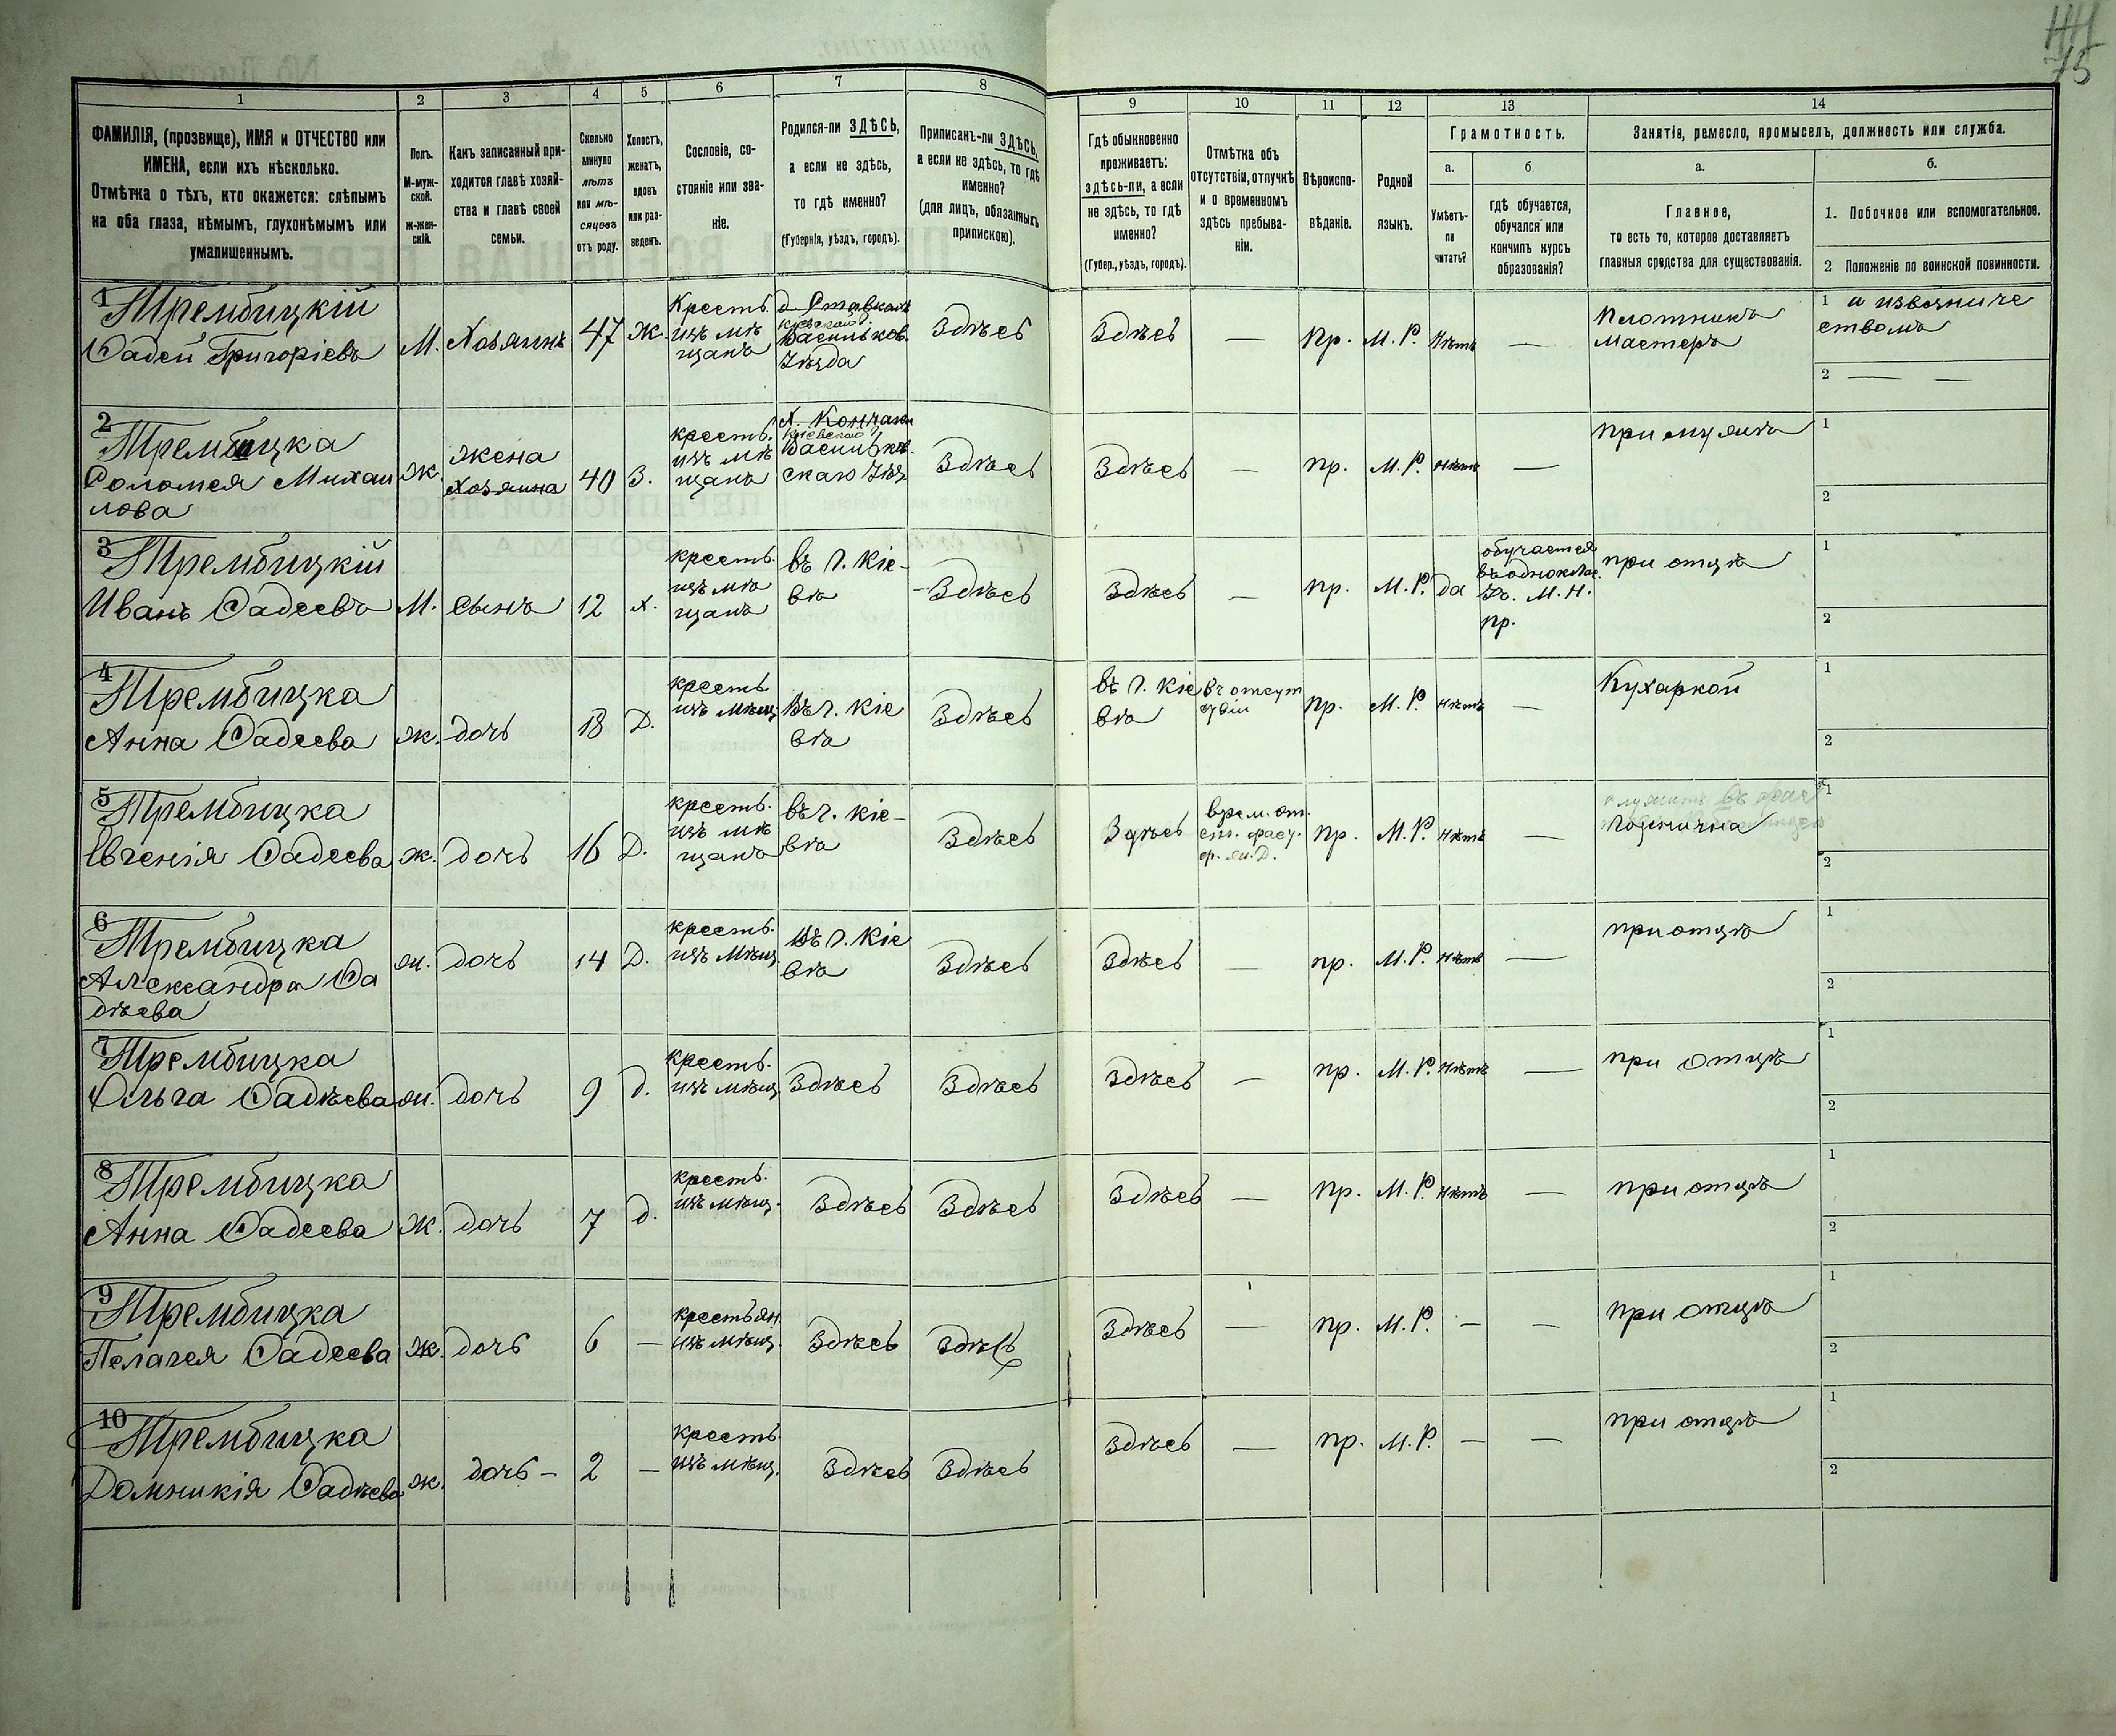 НН
75
1
2
3
4
5
6
7
8
9
10
11
12
13
14
ФАМИЛІЯ, (прозвище), ИМЯ и ОТЧЕСТВО или
ИМЕНА, если ихъ нѣсколько.
Отмѣтка о тѣхъ, кто окажется: слѣпымъ
на оба глаза, нѣмымъ, глухонѣмымъ или
умалишеннымъ.
Полъ.
М-муж-
ской.
Ж-жен-
скій.
Какъ записанный при-
ходится главѣ хозяй-
ства и главѣ своей
семьи.
Сколько
минуло
лѣтъ
или мѣ-
сяцевъ
отъ роду.
Холостъ,
женатъ,
вдовъ
или раз-
веденъ.
Сословіе, со-
стояніе или зва-
ніе.
Родился-ли ЗДѢСЬ,
а если не здѣсь,
то гдѣ именно?
(Губернія, уѣздъ, городъ).
Приписанъ-ли ЗДѢСЬ,
а если не здѣсь, то гдѣ
именно?
(для лицъ, обязанныхъ
припискою).
Гдѣ обыкновенно
проживаетъ:
здѣсь-ли, а если
не здѣсь, то гдѣ
именно?
(Губер., уѣздъ, городъ).
Отмѣтка объ
отсутствіи, отлучкѣ
и о временномъ
здѣсь пребыва-
ніи.
Вѣроиспо-
вѣданіе.
Родной
языкъ.
Грамотность.
а.
Умѣетъ-
ли
читать?
б
гдѣ обучается,
обучался или
кончилъ курсъ
образованія?
Занятія, ремесло, промыселъ, должность или служба.
а.
Главное,
то есть то, которое доставляетъ
главныя средства для существованія.
б.
1. Побочное или вспомогательное.
2 Положеніе по воинской повинности.
1
Трембицкій
Фадей Григоріевъ
М.
Хозяинъ
47
Ж.
Крестъ.
изъ мѣ
щанъ
Кіевской
Васильков.
Уѣзда
Здѣсь
Здѣсь
—
Пр.
М. Р.
Нѣтъ
—
Плотникъ
мастеръ
1 и извозниче
ствомъ
2 — —
2
Трембицка
Соломея Михаи
лова
Ж.
жена
хозяина
40
З.
крестъ.
изъ мѣ
щанъ
Кіевской
Васильков
скаго Уѣз
Здѣсь
Здѣсь
—
пр.
М. Р.
нѣтъ
—
при мужѣ
1
2
3
Трембицкій
Иванъ Фадеевъ
М.
сынъ
12
х.
крестъ.
изъ мѣ
щанъ
въ г. Кіе-
вѣ
Здѣсь
Здѣсь
—
пр.
М. Р.
да
обучается
въ однокла.
Уч. М. Н.
пр.
при отцѣ
1
2
4
Трембицка
Анна Фадеева
ж.
дочь
18
Д.
крестъ.
изъ мѣщ
Въ г. Кіе
вѣ
Здѣсь
въ г. Кіе
вѣ
въ отсут
ствіи
пр.
М. Р.
нѣтъ
—
Кухаркой
1
2
5
Трембицка
Евгенія Фадеева
ж.
дочь
16
Д.
крестъ.
изъ мѣ
щанъ
въ г. Кіе-
вѣ
Здѣсь
Здѣсь
врем. от.
пр.
М. Р.
нѣтъ
—
служитъ въ
Горнична
1
2
6
Трембицка
Александра Фа
дѣева
ж.
дочь
14
Д.
крестъ.
изъ мѣщ
Въ г. Кіе
вѣ
Здѣсь
Здѣсь
—
пр.
М. Р.
нѣтъ
—
при отцѣ
1
2
7
Трембицка
Ольга Фадѣева
ж.
дочь
9
д.
крестъ.
изъ мѣщ
Здѣсь
Здѣсь
Здѣсь
—
пр.
М. Р.
нѣтъ
—
при отцѣ
1
2
8
Трембицка
Анна Фадеева
Ж.
дочь
7
д.
крестъ.
изъ мѣщ.
Здѣсь
Здѣсь
Здѣсь
—
пр.
М. Р.
нѣтъ
—
при отцѣ
1
2
9
Трембицка
Пелагея Фадеева
Ж.
дочь
6
—
крестьян.
изъ мѣщ.
Здѣсь
Здѣсь
Здѣсь
—
пр.
М. Р.
—
—
при отцѣ
1
2
10
Трембицка
Домникія Фадѣева
ж.
дочь -
2
—
крестъ.
изъ мѣщ.
Здѣсь
Здѣсь
Здѣсь
—
пр.
М. Р.
—
—
при отцѣ
1
2